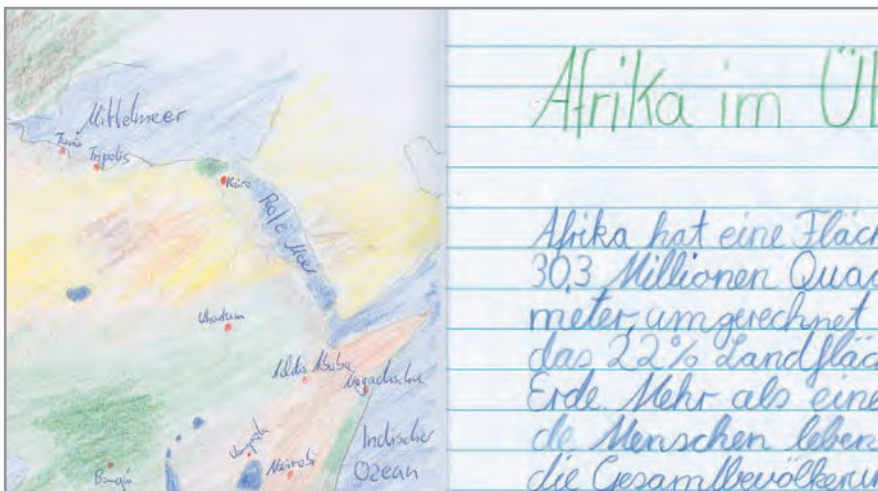 Mittelmeer
Tunis
Tripolis
Kairo
Rotes Meer
Khartum
Addis Abeba
Mogadischu
Kampala
Nairobi
Indischer
Ozean
Bangui
Afrika im Üb
Afrika hat eine Fläch
30,3 Millionen Quad
meter, umgerechnet
das 22% Landfläc
Erde. Mehr als eine
de Menschen leben
die Gesamtbevölkerun